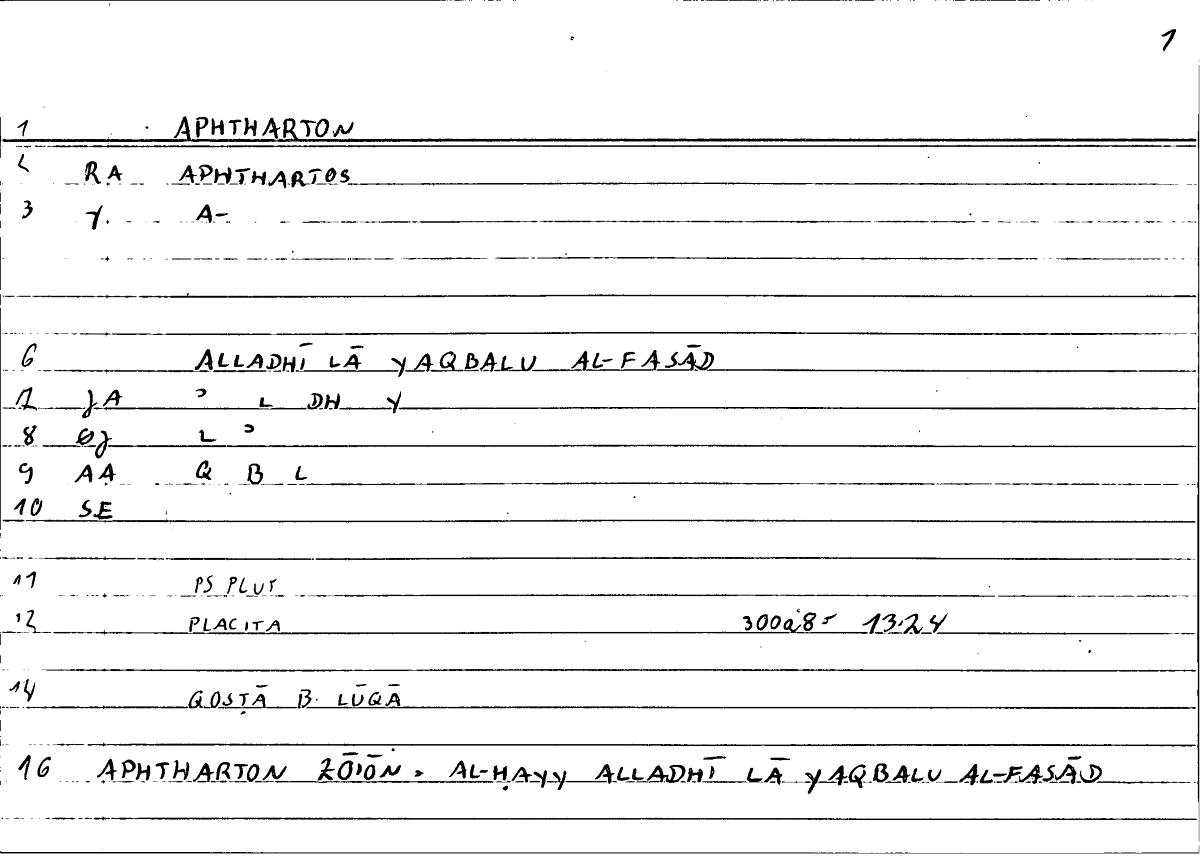 1
1 APHTHARTON
2 RA APHTHARTOS
3 A-
6 ALLADHĪ LĀ YAQBALU AL-FASĀD
7 JA ʾ L DH Y
8 ØJ L ʾ
9 AA Q B L
10 SE
11 PS PLUT
12 PLACITA 300a8= 13.24
14 QOSṬĀ B. LŪQĀ
16 APHTHARTON ZŌIŌN. AL-ḤAYY ALLADHĪ LĀ YAQBALU AL-FASĀD